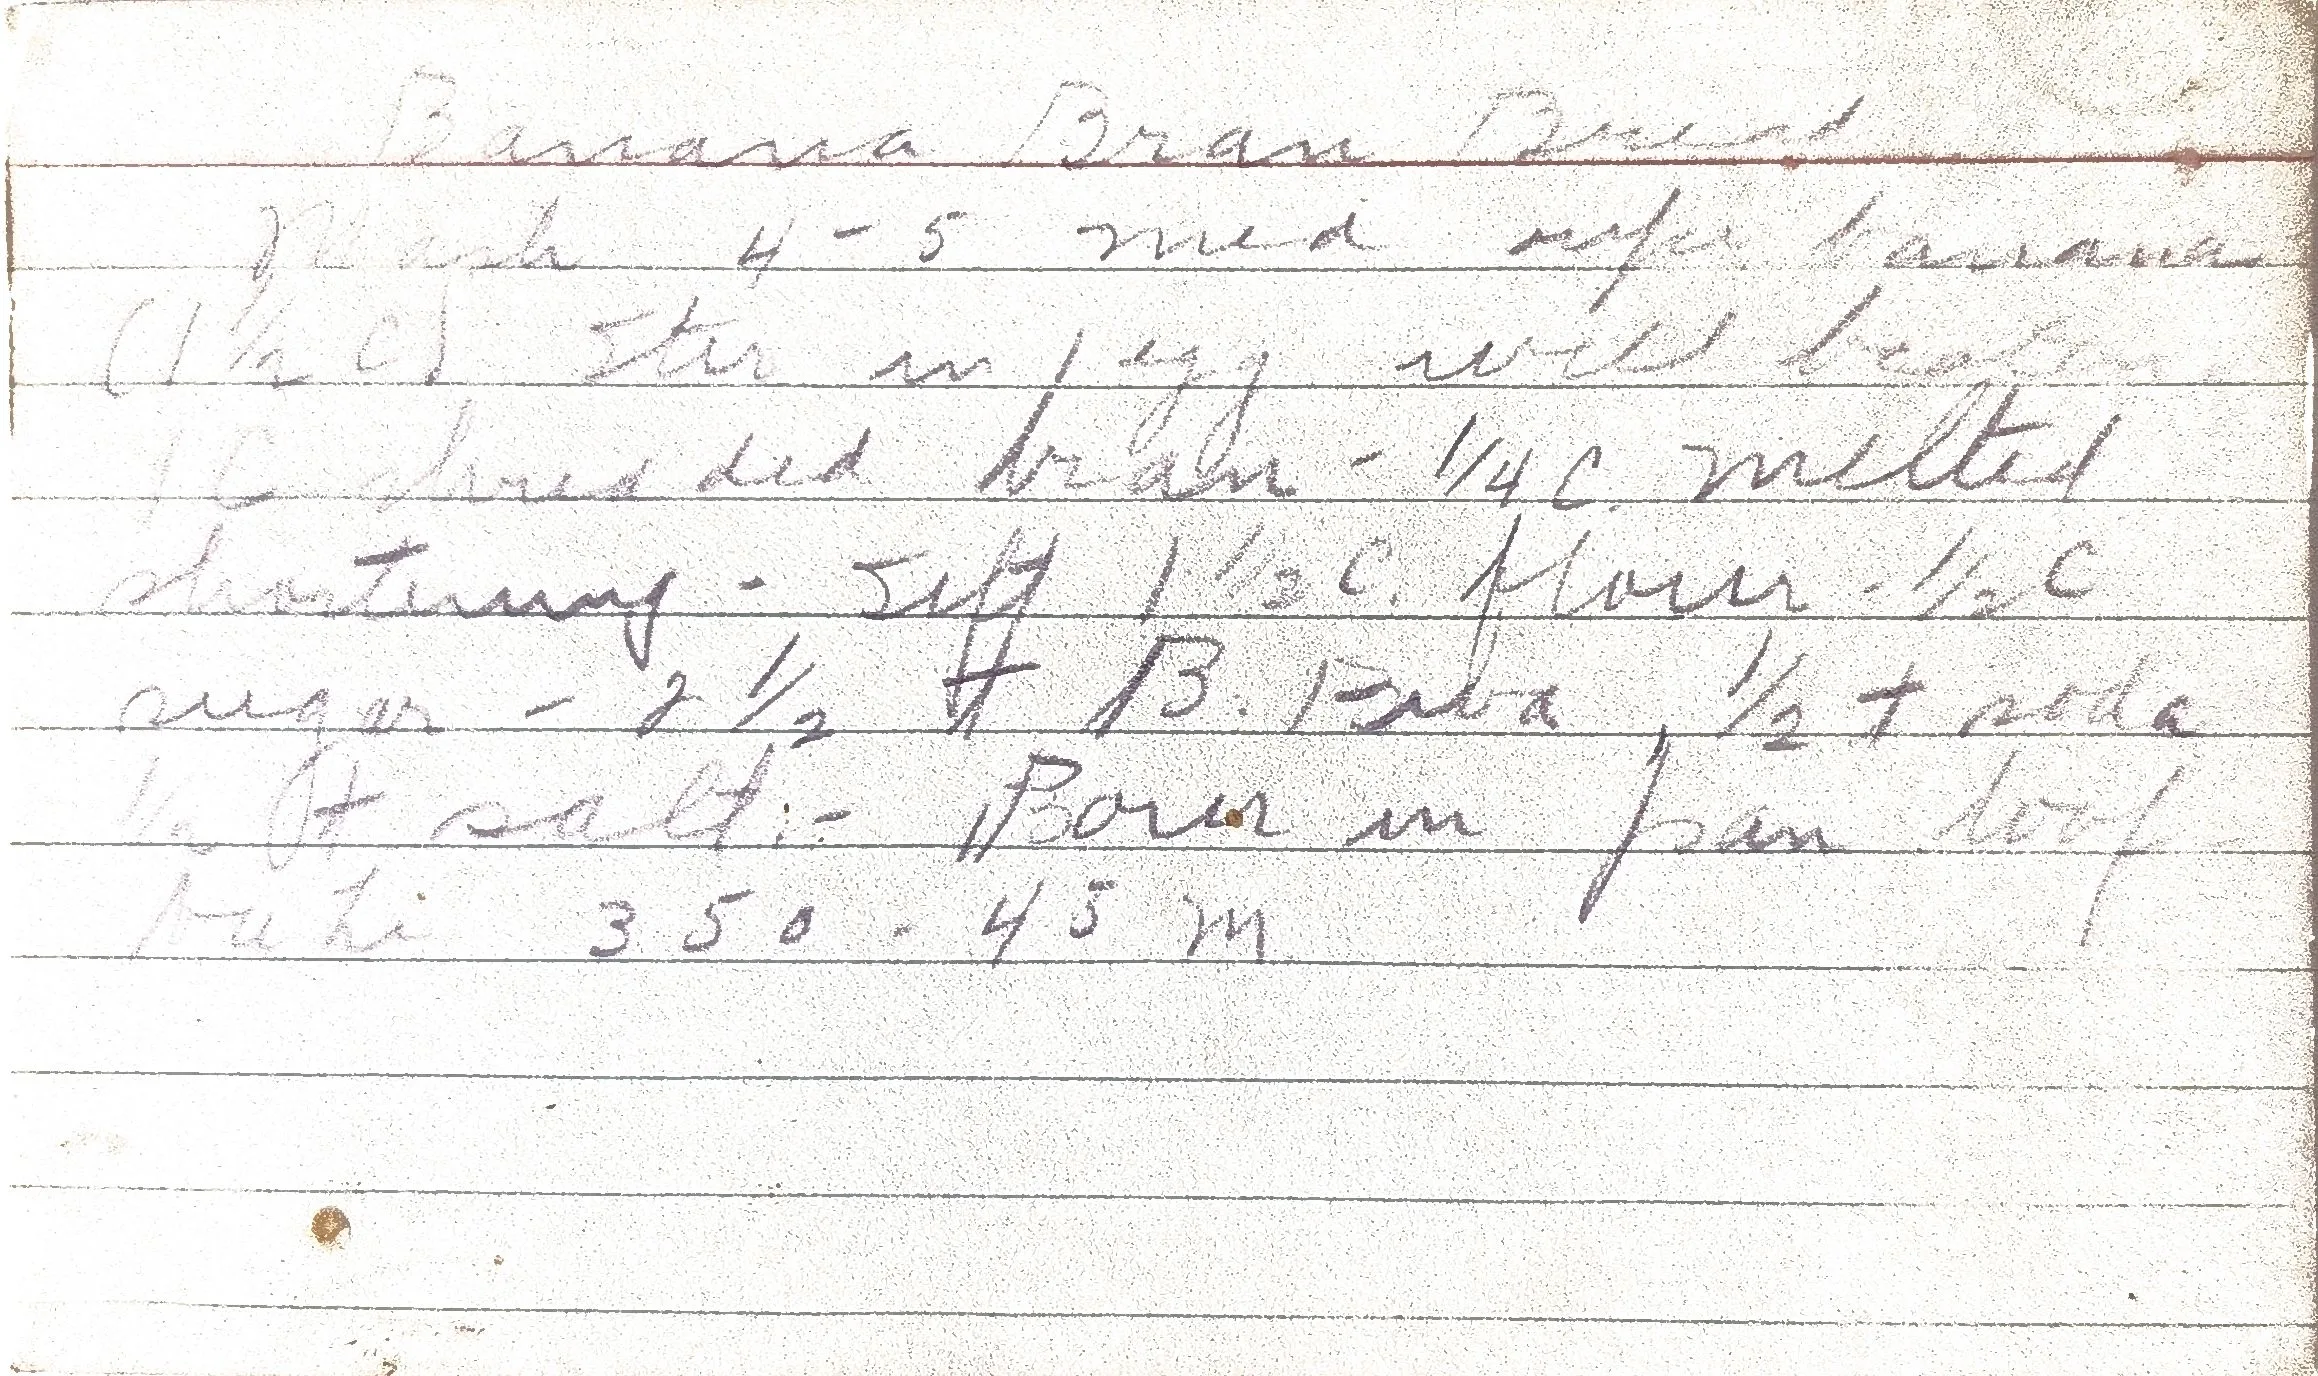 Banana Bran Bread
Mash 4-5 med ripe banana
(1 1/2 c) Stir in 1 egg well beaten
1 C shredded bran - 1/4 C. melted
shortening - Sift 1 1/3 c. flour - 1/2 C
sugar - 2 1/2 t B. 1/2 t soda
1/2 t salt - Pour in pan loof
bake 350 - 45 m